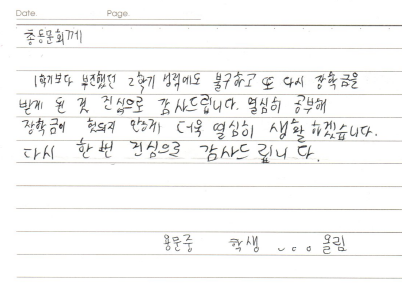 Date. Page.
총동문회께
1학기보다 부진했던 2학기 성적에도 불구하고 또 다시 장학금을
받게 된 것 진심으로 감사드립니다. 열심히 공부해
장학금이 헛되지 않게 더욱 열심히 생활하겠습니다.
다시 한번 진심으로 감사드립니다.
용문중 학생 ㅇㅇㅇ 올림